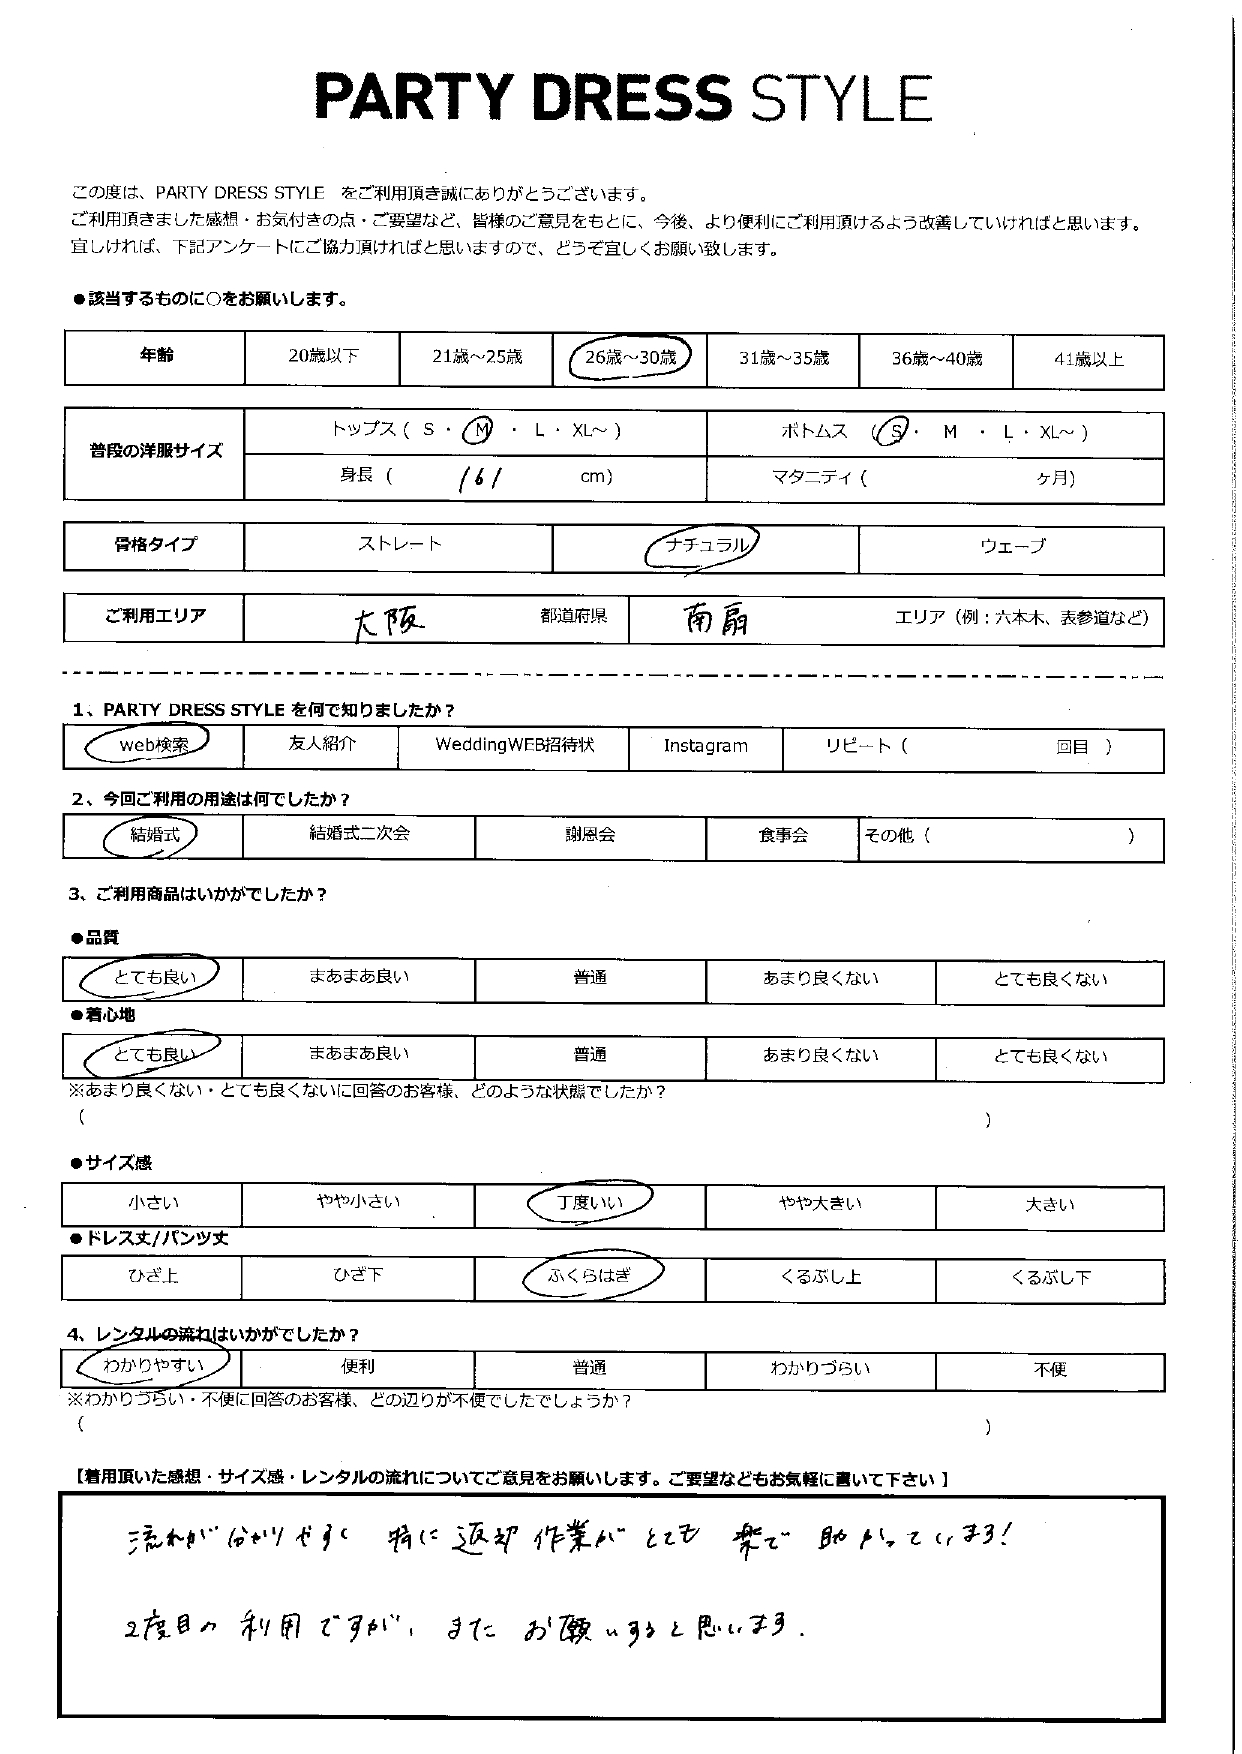 PARTY DRESS STYLE
この度は、PARTY DRESS STYLE をご利用頂き誠にありがとうございます。
ご利用頂きました感想・お気付きの点・ご要望など、皆様のご意見をもとに、今後、より便利にご利用頂けるよう改善していければと思います。
宜しければ、下記アンケートにご協力頂ければと思いますので、どうぞ宜しくお願い致します。
●該当するものに○をお願いします。
年齢 20歳以下 21歳～25歳 26歳～30歳 31歳～35歳 36歳～40歳 41歳以上
普段の洋服サイズ
トップス ( S ・ M ・ L ・ XL～ ) ボトムス ( S ・ M ・ L ・ XL～ )
身長 ( 161 cm) マタニティ ( ヶ月)
骨格タイプ ストレート ナチュラル ウェーブ
ご利用エリア 大阪 都道府県 南扇 エリア (例：六本木、表参道など)
1、PARTY DRESS STYLE を何で知りましたか？
web検索 友人紹介 WeddingWEB招待状 Instagram リピート ( 回目 )
2、今回ご利用の用途は何でしたか？
結婚式 結婚式二次会 謝恩会 食事会 その他 ( )
3、ご利用商品はいかがでしたか？
●品質
とても良い まあまあ良い 普通 あまり良くない とても良くない
●着心地
とても良い まあまあ良い 普通 あまり良くない とても良くない
※あまり良くない・とても良くないに回答のお客様、どのような状態でしたか？
( )
●サイズ感
小さい やや小さい 丁度いい やや大きい 大きい
●ドレス丈/パンツ丈
ひざ上 ひざ下 ふくらはぎ くるぶし上 くるぶし下
4、レンタルの流れはいかがでしたか？
わかりやすい 便利 普通 わかりづらい 不便
※わかりづらい・不便に回答のお客様、どの辺りが不便でしたでしょうか？
( )
【着用頂いた感想・サイズ感・レンタルの流れについてご意見をお願いします。ご要望などもお気軽に書いて下さい 】
流れが分かりやすく 特に返却作業がとても 楽で 助かっています!
2度目の利用ですが、またお願いすると思います.